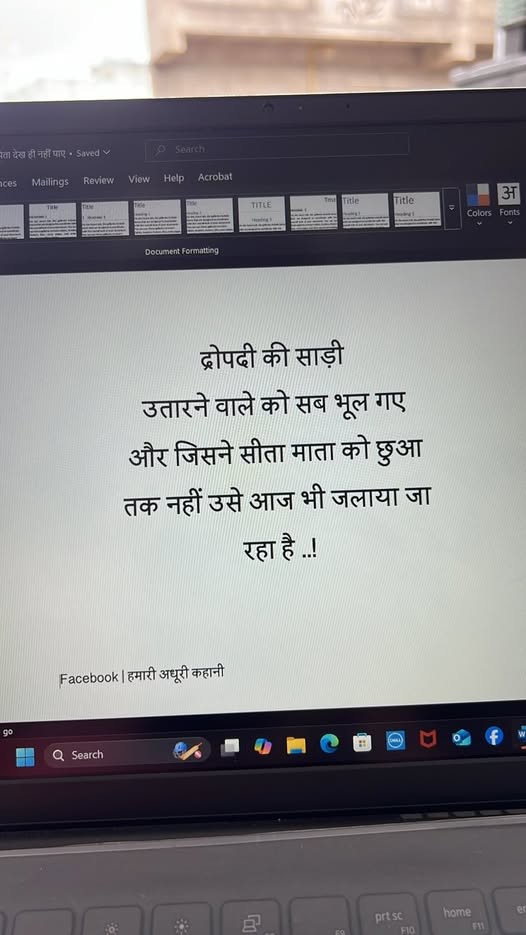 देख ही नहीं पाए • Saved
Search
Mailings Review View Help Acrobat
Title Title Title Title TITLE Title Title
Colors Fonts
Document Formatting
द्रोपदी की साड़ी
उतारने वाले को सब भूल गए
और जिसने सीता माता को छुआ
तक नहीं उसे आज भी जलाया जा
रहा है ..!
Facebook | हमारी अधूरी कहानी
go
Search
DELL
prt sc
home
F9 F10 F11